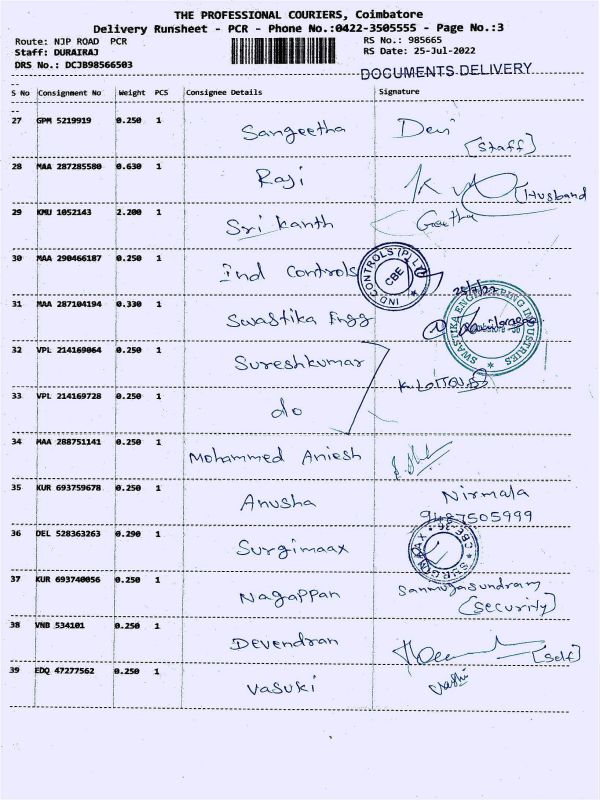 THE PROFESSIONAL COURIERS, Coimbatore
Delivery Runsheet - PCR - Phone No.:0422-3505555 - Page No.:3
Route: NJP ROAD PCR
RS No.: 985665
Staff: DURAIRAJ
RS Date: 25-Jul-2022
DRS No.: DCJB98566503
DOCUMENTS DELIVERY
S No Consignment No Weight PCS Consignee Details Signature
27 GPM 5219919 0.250 1 Sangeetha Devi
[Staff]
28 MAA 287285580 0.630 1 Raji
[Husband
29 KMU 1052143 2.200 1 Srikanth Geetha
30 MAA 290466187 0.250 1 Ind Controls
IND CONTROLS (P) LTD * CBE
31 MAA 287104194 0.330 1 Swastika Engg
SWASTIKA ENGINEERING INDUSTRIES *
32 VPL 214169064 0.250 1 Sureshkumar
33 VPL 214169728 0.250 1 do
34 MAA 288751141 0.250 1 Mohammed Aniesh
35 KUR 693759678 0.250 1 Anusha Nirmala
9487505999
36 DEL 528363263 0.290 1 Surgimaax
37 KUR 693740056 0.250 1 Nagappan Sanmugasundram
[Security]
38 VNB 534101 0.250 1 Devendran [Self]
39 EDQ 47277562 0.250 1 Vasuki Vashi